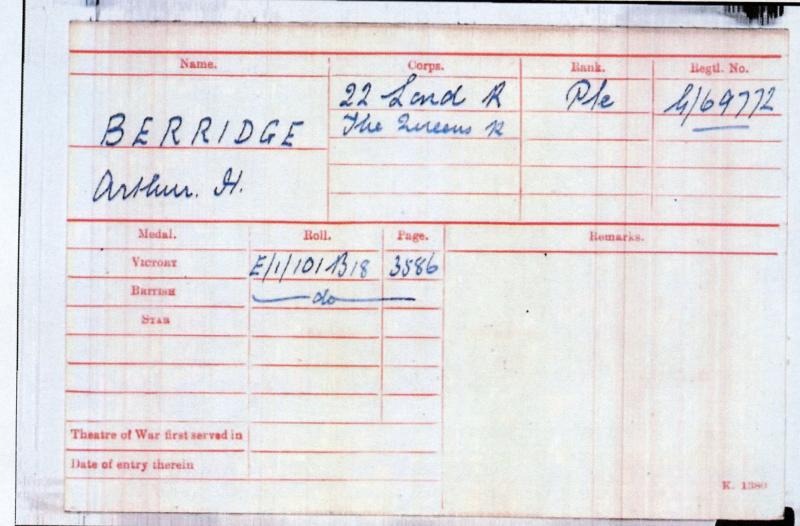 Name. Corps. Rank. Regtl. No.
22 Lond R Pte G/69772
BERRIDGE The Queens R
Arthur. H.
Medal. Roll. Page. Remarks.
VICTORY E/1/101B18 3586
BRITISH do
STAR
Theatre of War first served in
Date of entry therein
K. 1380